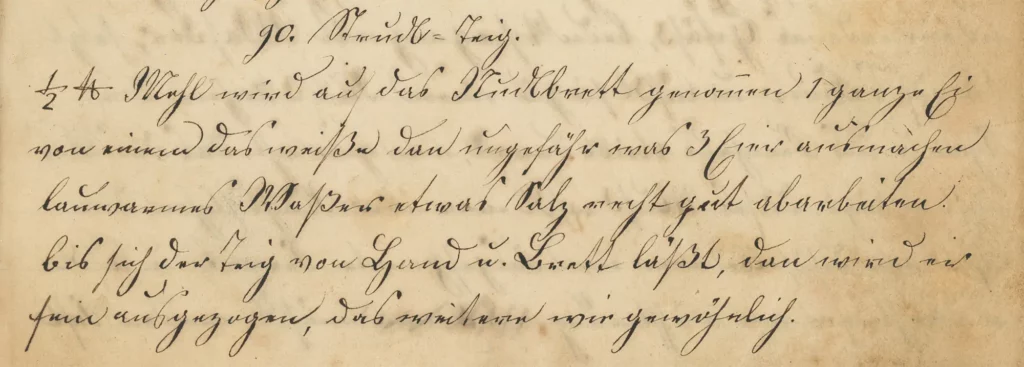 90. Strudl=Teig.
½ ℔ Mehl wird auf das Nudlbrett genom̅en 1 ganze Ei
von einem das weiße dan ungefähr was 3 Eier ausmachen
lauwarmes Waßer etwas Salz recht gut abarbeiten.
bis sich der Teig von Hand u. Brett läßt, dan wird er
fein ausgezogen, das weitere wie gewöhnlich.